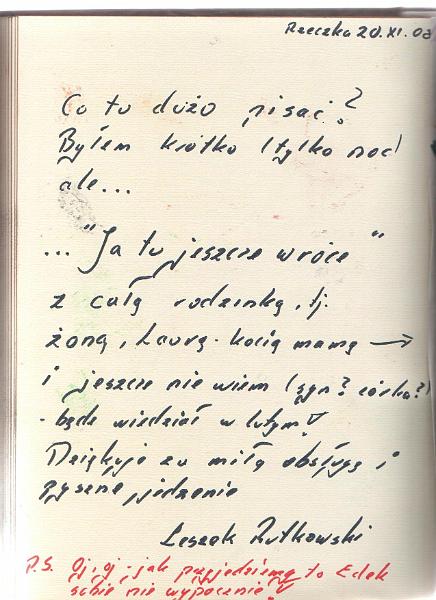 Rzeczka 20.XI.08
Co tu dużo pisać?
Byłem krótko (tylko noc)
ale...
... "Ja tu jeszcze wrócę"
z całą rodzinką, tj.
żoną, Laurą - kocią mamą →
i jeszcze nie wiem (syn? córka?)
- będę wiedział w lutym!
Dziękuję za miłą obsługę i
pyszne jedzenie
Leszek Rutkowski
P.S. Oj, oj - jak przyjedziemy to Edek
sobie nie wypocznie!